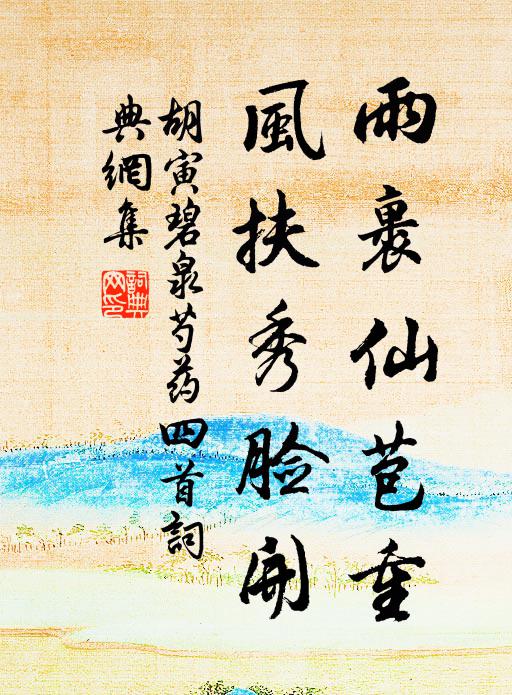 雨裹仙苞重
風扶秀臉開
胡寅碧泉芍药四首詞
典網集
詞典
网印